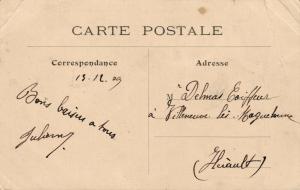 CARTE POSTALE
Correspondance
Adresse
13-12 09
Bons baisers a tous
Delmas Coiffeur
à Villeneuve lès Maguelonne
(Hérault)